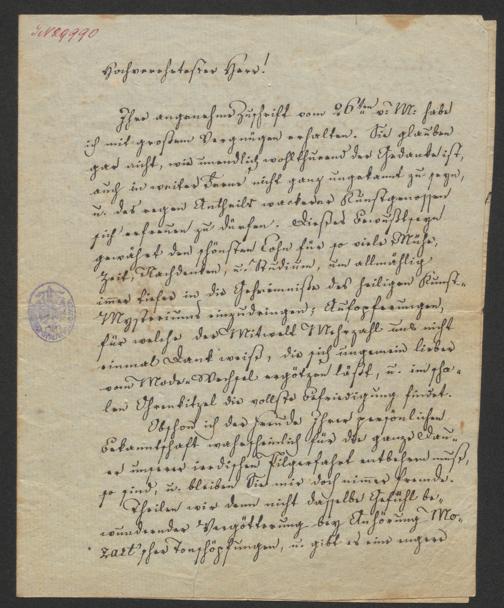 I.N. 29990
Hochverehrtester Herr!
Ihre angenehme Zuschrift vom 26ten v: M: habe
ich mit großem Vergnügen erhalten. Sie glauben
gar nicht, wie unendlich wohlthuend der Gedanke ist,
auch in weiter Ferne nicht ganz ungekannt zu seyn,
u. des regen Antheils wackerer Kunstgenossen
sich erfreuen zu dürfen. Dießes Bewußtseyn
gewährt den schönsten Lohn für so viele Mühe,
Zeit, Nachdenken, u. Studium, um allmählig
immer tiefer in die Geheimniße des heiligen Kunst-
Mysteriums einzudringen; Aufopferungen,
für welche der Mitwelt Mehrzahl uns nicht
einmal Dank weiß, die sich ungemein lieber
vom Mode-Wechsel ergötzen läßt, u. im scha-
len Ohrenkitzel die vollste Befriedigung findet.
Obschon ich der Freude Ihrer persönlichen
Bekanntschaft wahrscheinlich für die ganze Dau-
er unserer irrdischen Pilgerfahrt entbehren muß,
so sind, u. bleiben Sie mir doch nimmer fremde.
Theilen wir denn nicht dasselbe Gefühl be-
wundernder Vergötterung bey Anhörung Mo-
zart'scher Tonschöpfungen, u. gibt es ein engeres